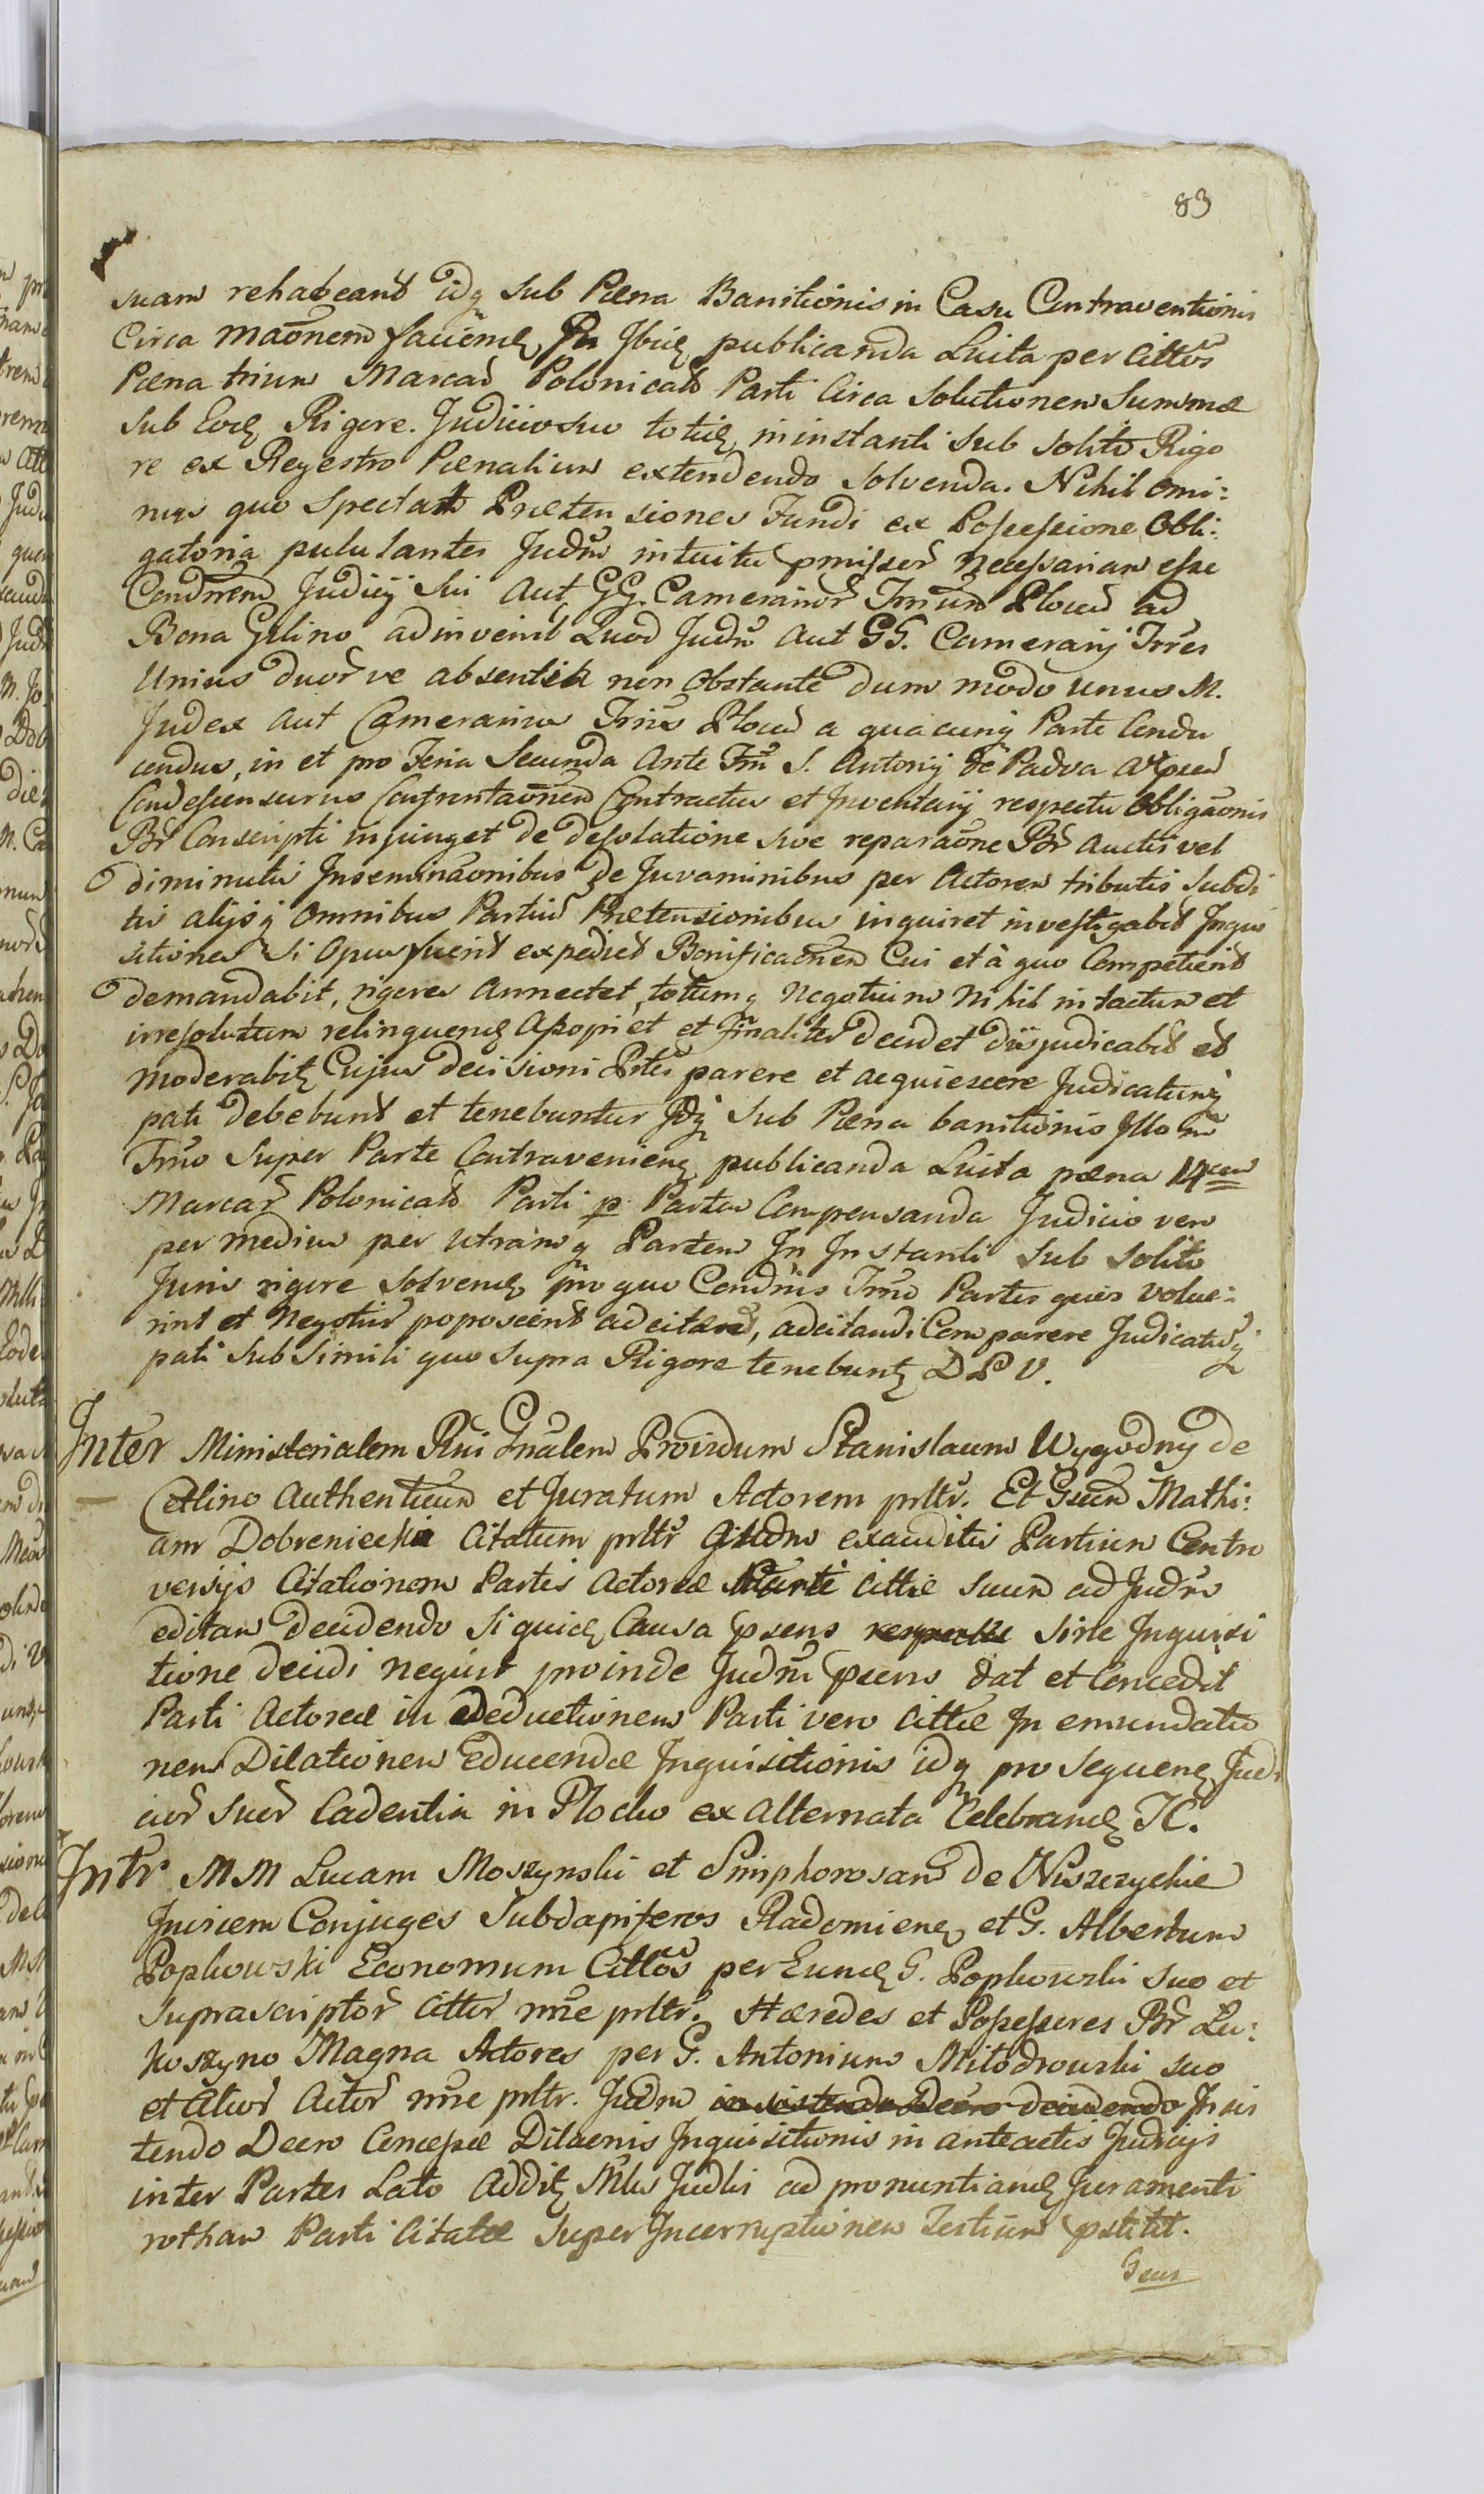 83
suam rehabeant idq sub Pæna Banitionis in Casu Contraventionis
Circa maõnem faciend, Pn Ibid publicanda Luita per Cittõs
Pæna trium Marcar Polonical Parti Circa Solutionem Summæ
sub Eod Rigore. Judicio suo totid, in instanti sub solito Rigo
re ex Regestro Pænalium extendendo solvenda. Nihil omi:
nus quo spectat Prætensiones Fundi ex Possessione Obli:
gatoria pululantes Judm intuitu pmissor necessariam esse
Condnem Judicij Sui aut GG. Camerarior Trrium Plocen ad
Bona Gilino adinvenit Quod Judm aut GG. Camerarij Trres
Unius duor ve absentia non Obstante dum modo unus M.
Judex aut Camerarius Trris Plocen a quacunq Parte Condu
cendus, in et pro Feria Secunda Ante Fm S. Antonij de Padva
Condescensurus Confrontaõnem Contractus et Inventarij respectu Obligaõnis
Br Conscripti injunget de desolatione sive reparaõne Br auctis vel
diminutis Inseminaõnibus de Juvaminibus per Actorem tributis Subdi
tis alijsq omnibus Partium Prætensionibus inquiret investigabit Inqui
sitiones Si Opus fuerit expediet Bonificaõnem Cui et à quo Competierit
demandabit, rigores Annectet, totumq Negotium Nihil intactum et
irresolutum relinquend Assopiet et Finaliter decidet dijudicabit et
moderabit Cujus decisioni Ptes parere et acquiescere Judicatumq
pati debebunt et tenebuntur Idq sub Pæna banitionis Illo in
Trmo Super Parte Contravenien publicanda Luita pæna 14cem
Marcar Polonical Parti p Partem Compensanda Judicio vero
per medium per utramq Partem In Instanti sub solito
Juris rigore solvend pro quo Condnis Trmo Partes quos volue:
rint et Negotium poposcerit adcitare, adcitandi Comparere Judicatumq
pati sub simili quo supra Rigore tenebunt D P V.
Inter Ministerialem Rni Gnalem Providum Stanislaum Wygodny de
Cetlino Authenticum et Juratum Actorem prltr. Et Gsum Mathi:
am Dobreniecki Citatum prltr Judm exauditis Partium Contro
versijs Citationem Partis Actoreæ Parti Cittæ suum ad Judm
editam decidendo Siquid Causa psens respectu sine Inquisi
tione decidi nequit proinde Judm psens dat et Concedit
Parti Actoreæ in Deductionem Parti vero Cittæ In emundatio
nem Dilationem educendæ Inquisitionis idq pro Sequen Judi
cior suor Cadentia in Plocko ex alternata Celebrand TC.
Intr MM Lucam Moszynski et Simphorosam de Niszczyckie
Invicem Conjuges Subdapiferos Radomien et G. Albertum
Popkowski Economum Cittos per Eund G. Popkowski suo et
suprascriptor Cittor nne prltr. Hæredes et Possessores Br Lu:
koszyno Magna Actores per G. Antonium Milodrowski suo
et alior Actor nne prltr. Judm in sistendo Decro decidendo Insis
tendo Decro Concessæ Dilaõnis Inquisitionis in anteactis Judicijs
inter Partes Lato addit Mlis Judlis ad pronuntiand Juramenti
rotham Parti Citatæ super Incorruptionem Testium pstitit.
Gsus